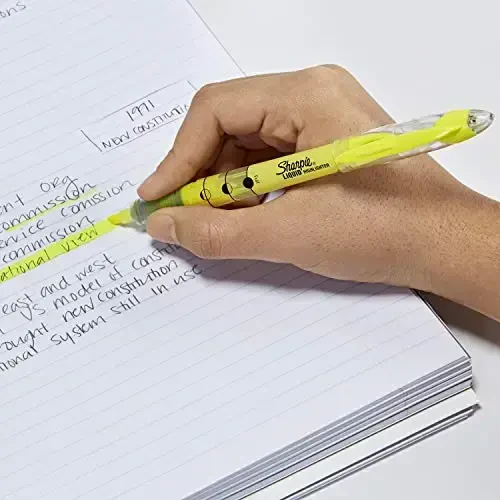 ons
1971
new constitution
ent org
commission
ervice comission
commission
ational view
east and west
's model of constitu
ought new constitution
ional system still in use
Sharpie
LIQUID HIGHLIGHTER